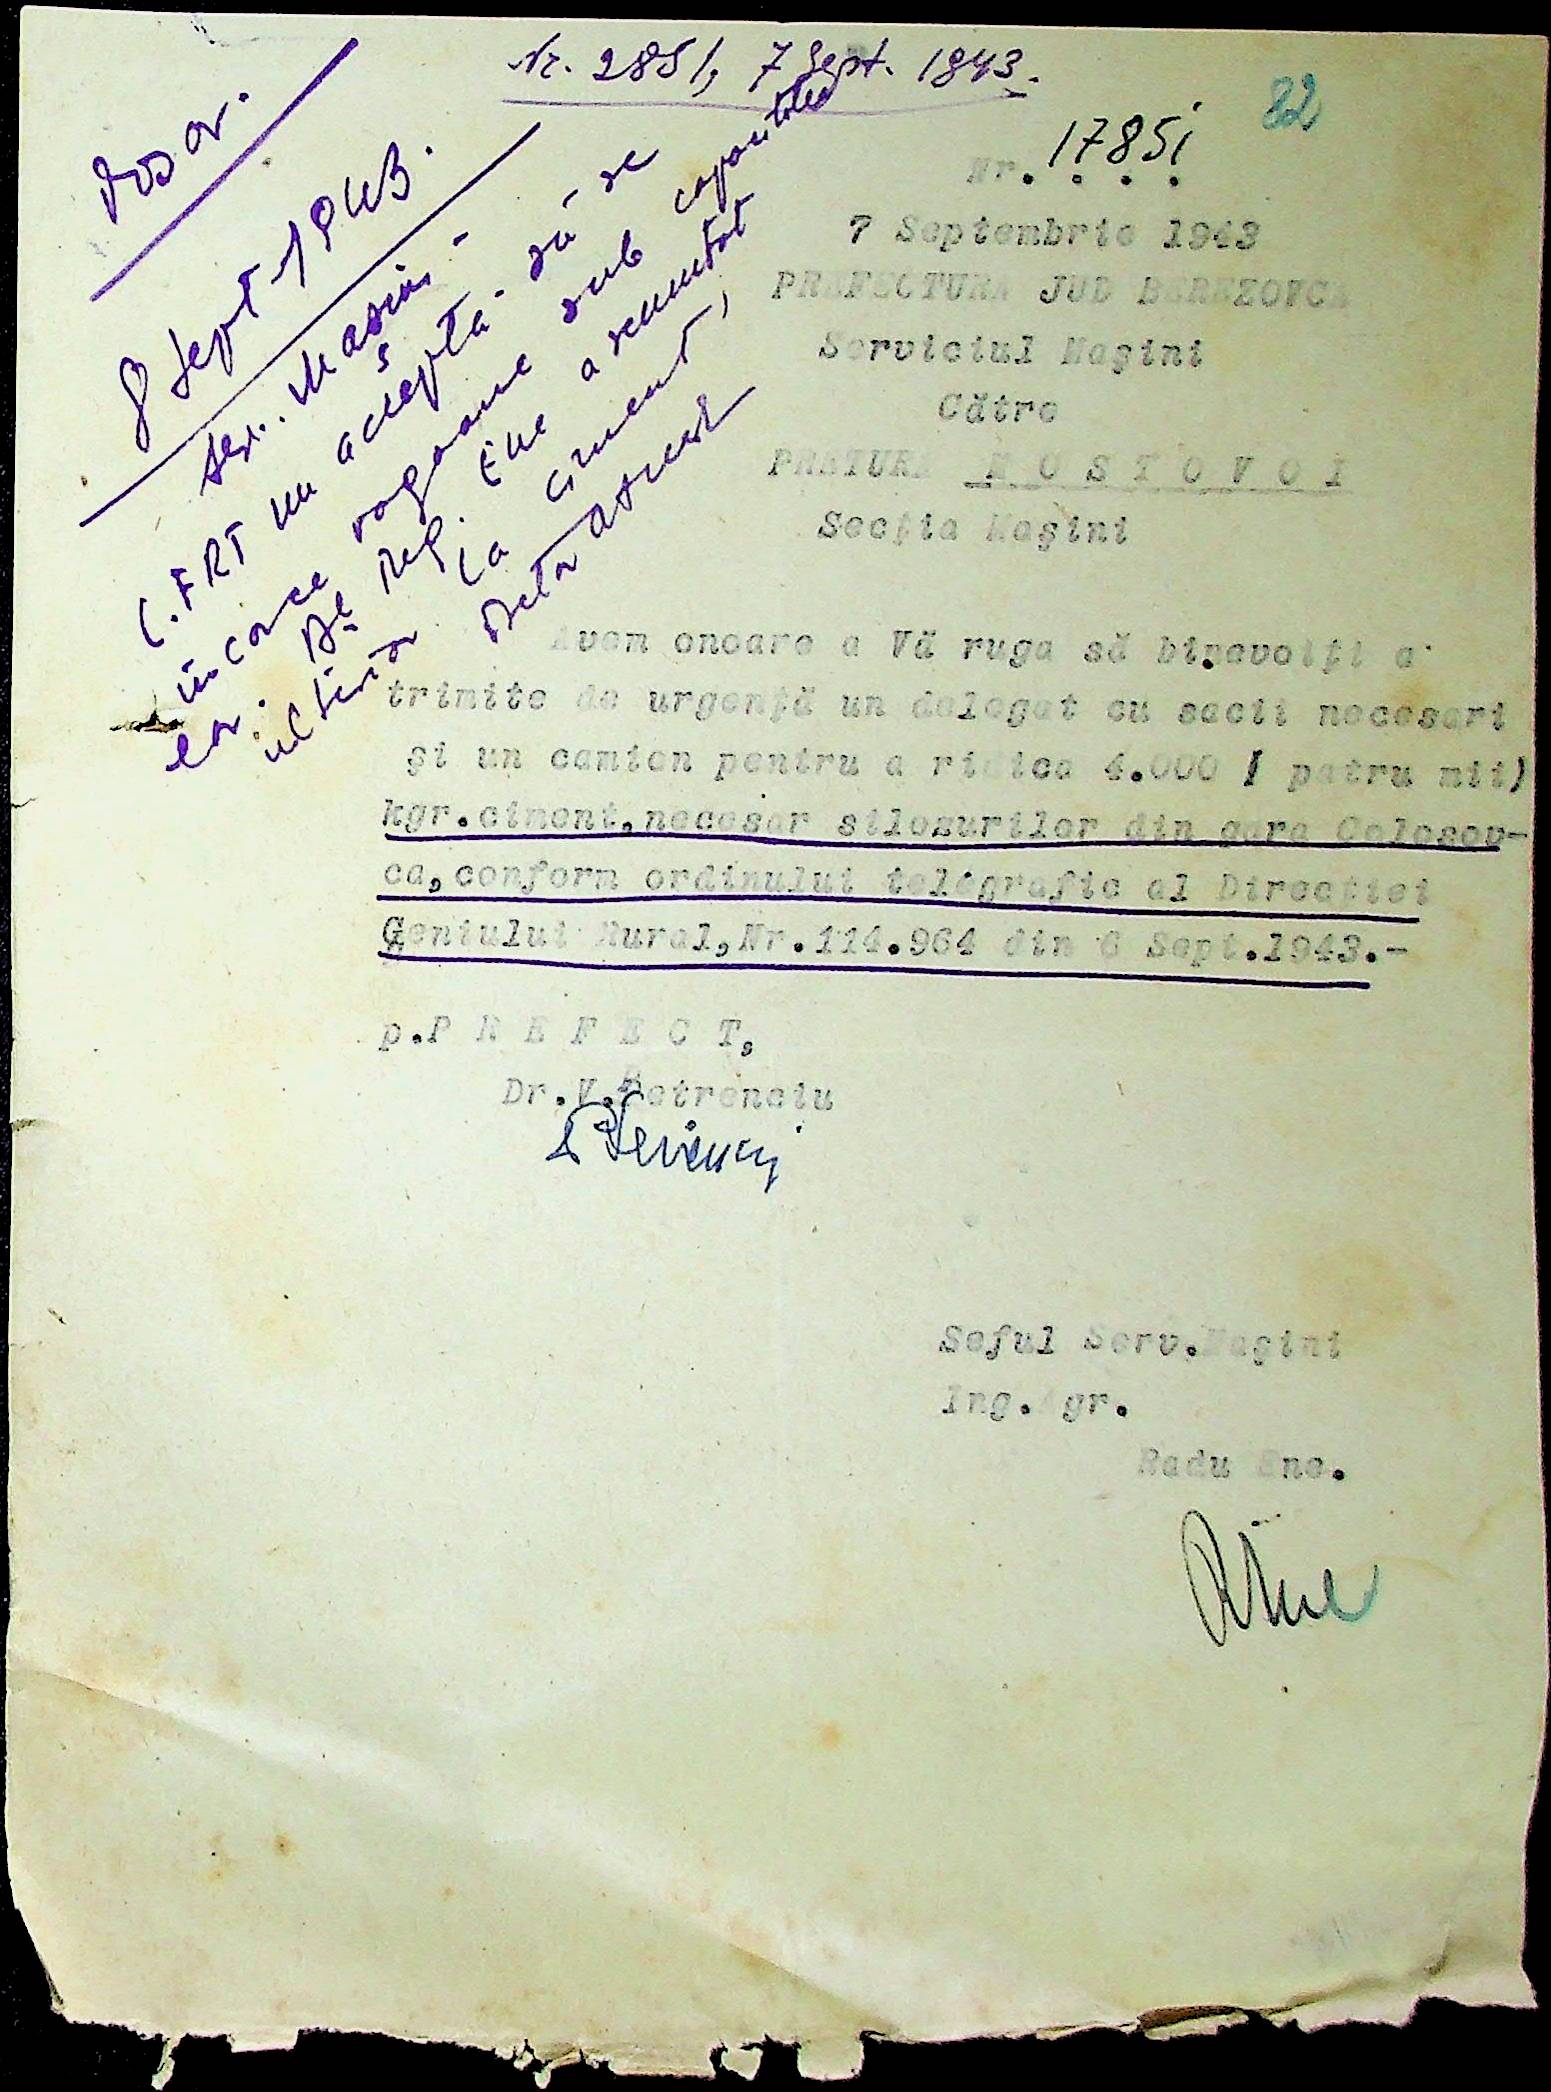 Nr. 2851, 7 Sept. 1943.
82
Dosar.
8 Sept 1943.
Serv. Mașini -
C.FRT nu acceptă să se
incarce vagoane sub capacitatea
lor. Dl Ref. Ene a renunțat
ulterior la ciment,
Nr. 1785i
7 Septembrie 1943
PREFECTURA JUD BEREZOVCA
Serviciul Mașini
Către
PRETURA M O S T O V O I
Secția Mașini
Avem onoare a Vă ruga să binevoiți a
trimite de urgență un delegat cu sacii necesari
și un camion pentru a ridica 4.000 / patru mii)
kgr.ciment,necesar silozurilor din gara Colosov-
ca,conform ordinului telegrafic al Direcției
Geniului Rural,Nr.114.964 din 6 Sept.1943.-
p.P R E F E C T,
Dr.V.Petrenciu
Seful Serv.Mașini
Ing.Agr.
Radu Ene.
REne